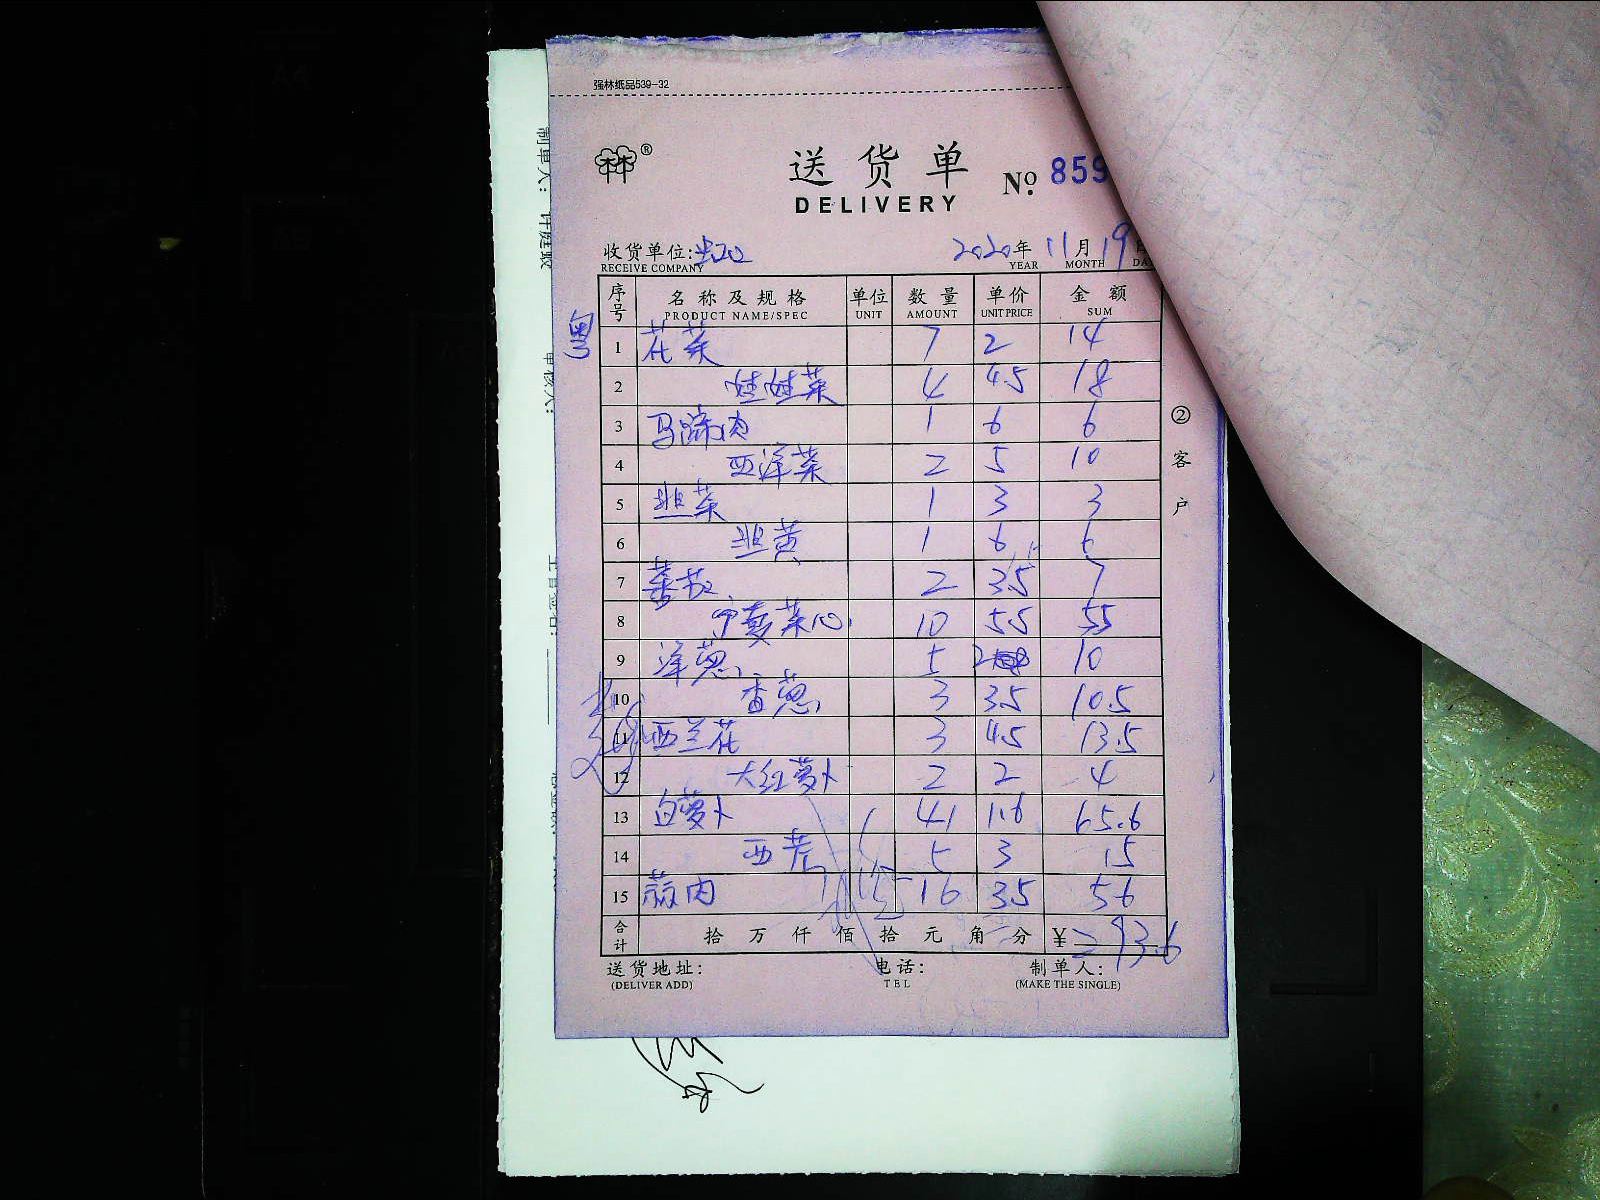 强林纸品539-32
林林®
送货单 № 859
DELIVERY
收货单位: 2020年 11月 19日
RECEIVE COMPANY YEAR MONTH DA
序号 名称及规格 单位 数量 单价 金额
PRODUCT NAME/SPEC UNIT AMOUNT UNIT PRICE SUM
1 花菜 7 2 14
2 娃娃菜 4 4.5 18
3 马蹄肉 1 6 6
4 西洋菜 2 5 10
5 韭菜 1 3 3
6 韭黄 1 6 6
7 蕃茄 2 3.5 7
8 宁夏菜心 10 5.5 55
9 洋葱 5 2 10
10 香葱 3 3.5 10.5
11 西兰花 3 4.5 13.5
12 大红萝卜 2 2 4
13 白萝卜 41 1.6 65.6
14 西芹 5 3 15
15 蒜肉 16 3.5 56
合计 拾 万 仟 佰 拾 元 角 分 ¥293.6
送货地址: 电话: 制单人:
(DELIVER ADD) TEL (MAKE THE SINGLE)
②客户
制单人:
审核人: